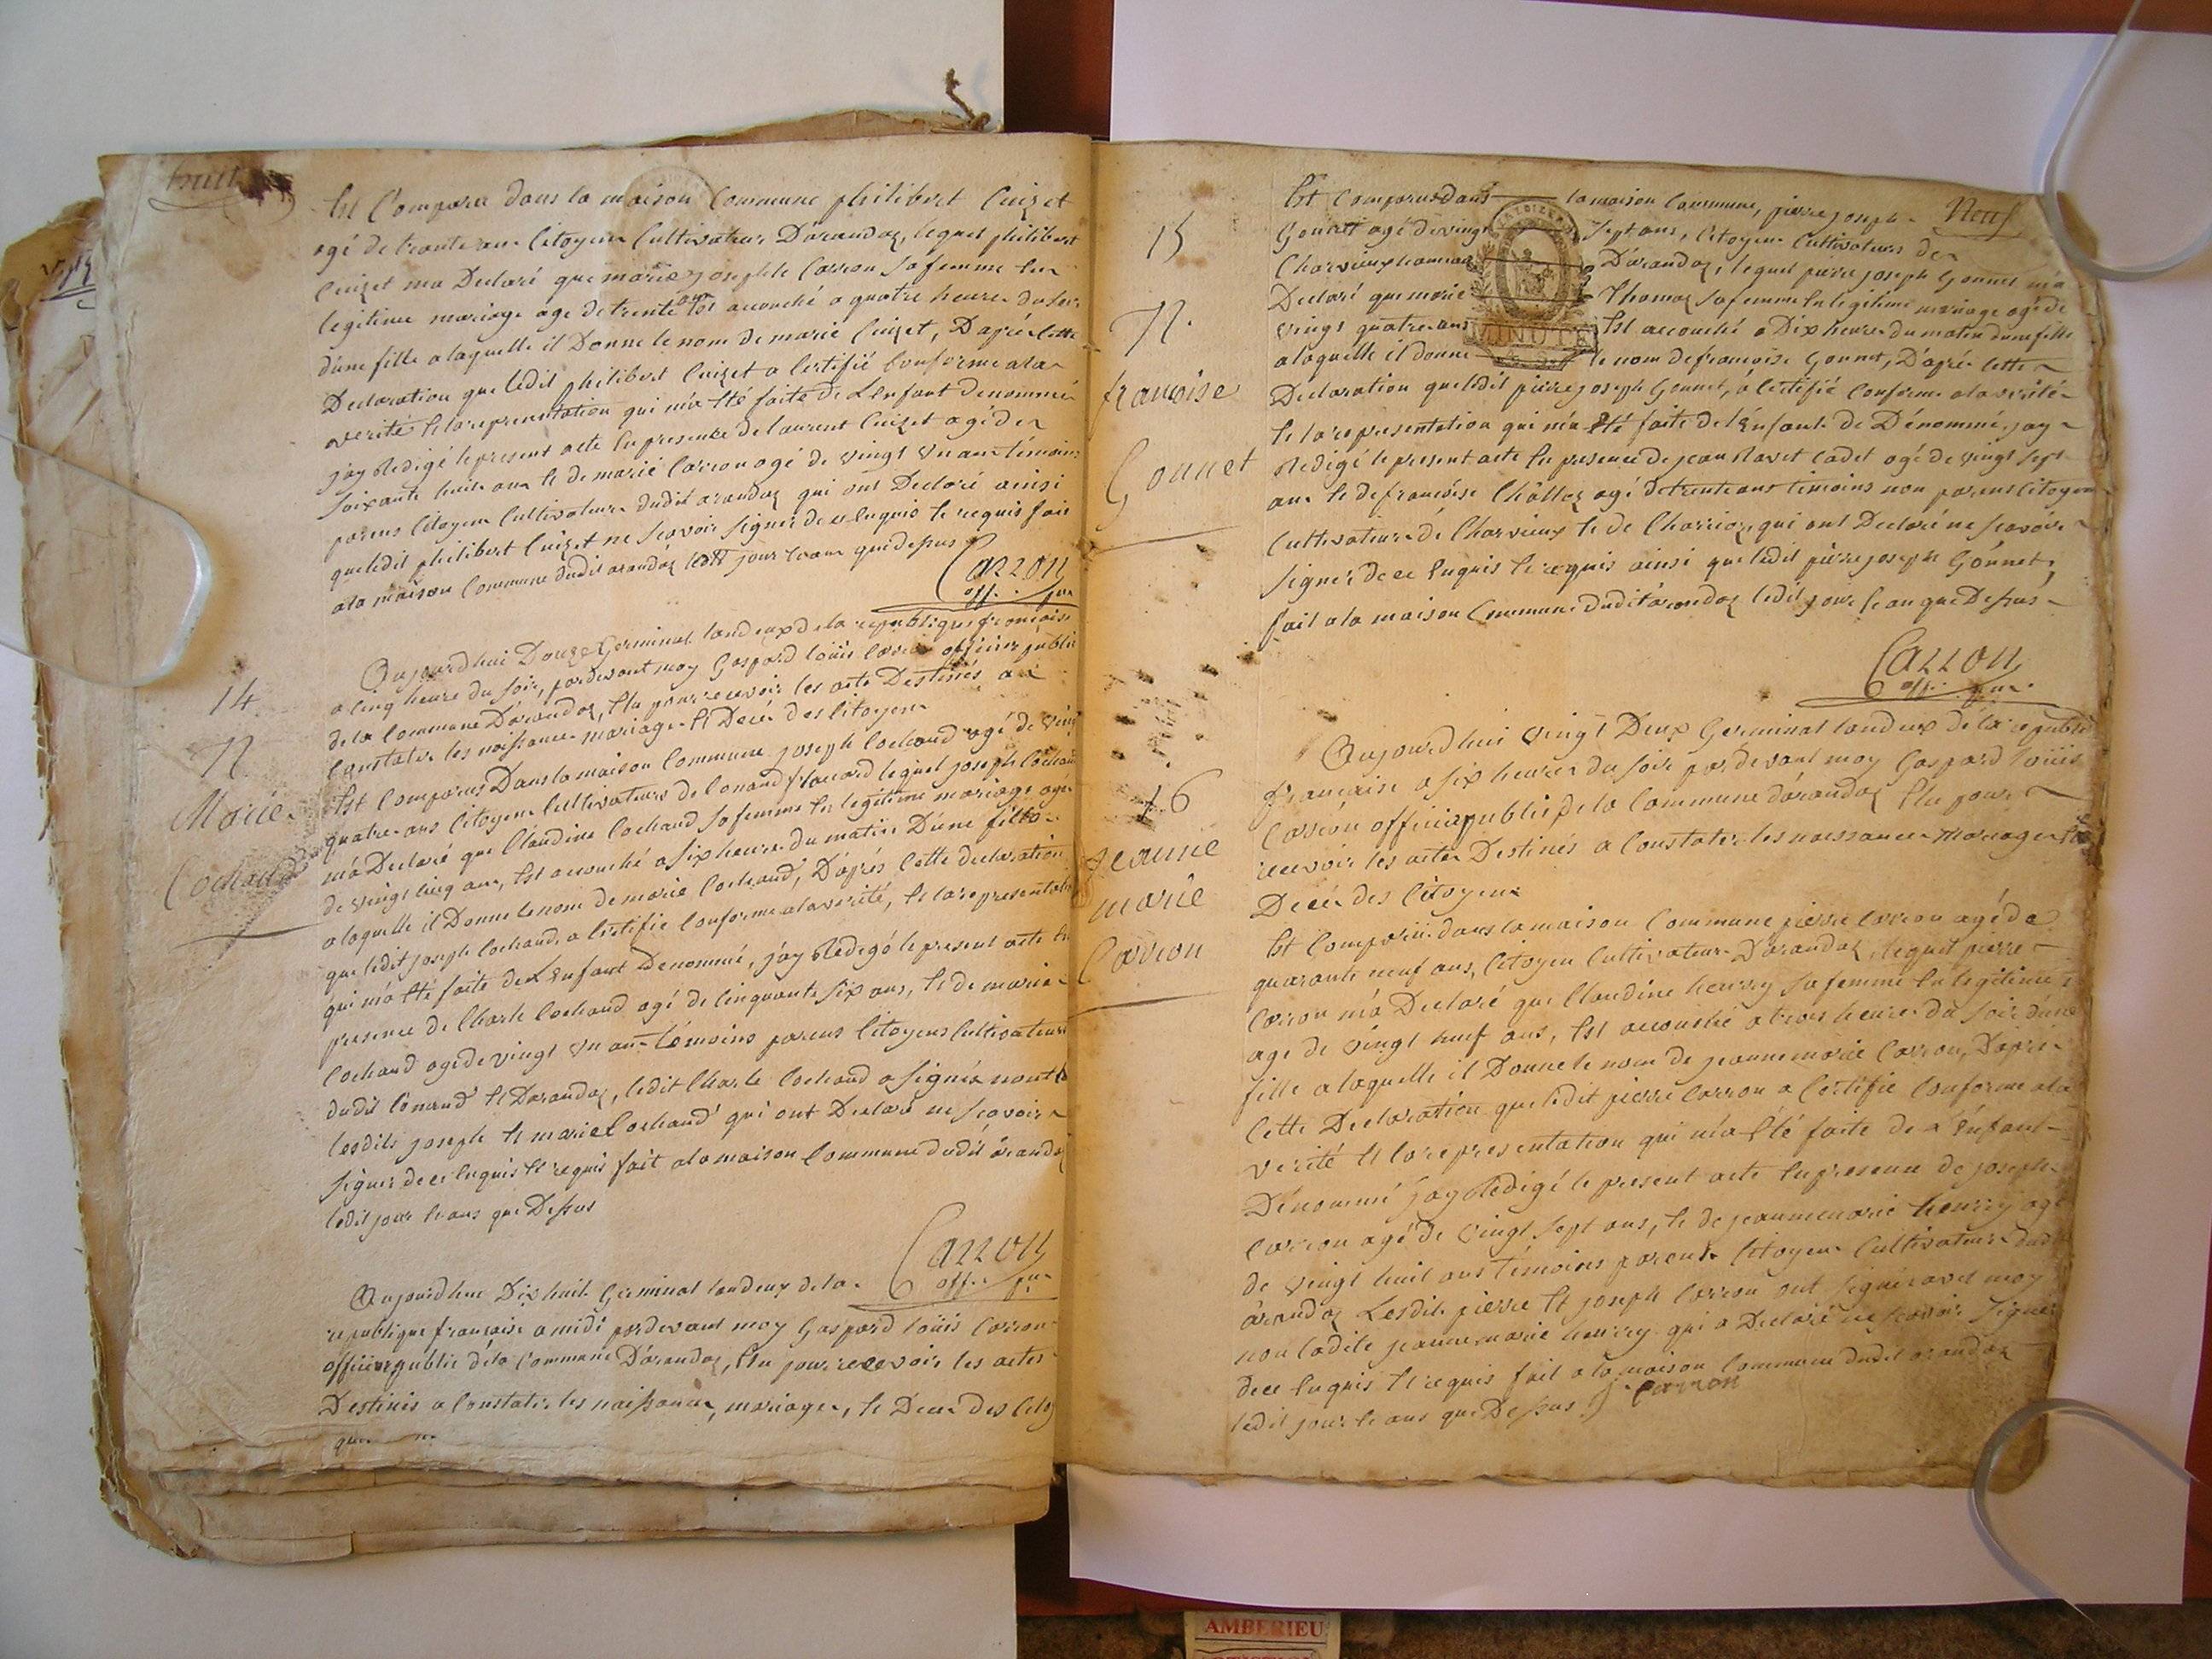 huit
Est Comparu dans la maison Commune philibert Cuizet
agé de trante ans Citoyen Cultivateur D'arandaz, lequel philibert
Cuizet ma Declaré que marie josephte Carron sa femme En
legitime mariage age de trente ans Est accouché a quatre heure du soir
d'une fille a laquelle il Donne le nom de marie Cuizet, D'aprés Cette
Declaration que ledit philibert Cuizet a Certifié Conforme a la
verité Et la representation qui m'a Eté faite de L'enfant denommé
j'ay Redigé le present acte En presence de laurent Cuizet agé de
soixante huit ans Et de marie Carron agé de vingt un ans témoins
parens Citoyens Cultivateurs dudit arandaz qui ont Declaré ainsi
que ledit philibert Cuizet ne sçavoir signer de ce Enquis Et requis fait
a la maison Commune dudit arandaz ledit jour Et an que dessus
Carron
off. pu.
14
N
Marie
Cochaud
Aujourd'hui Douze Germinal l'an deux de la republique françoise
a Cinq heure du soir, par devant moy Gaspard Loüis Carron officier public
de la Commune D'arandaz, Elu pour recevoir les acte Destinés a
Constater les naissance mariage Et Decés des Citoyens
Est Comparus Dans la maison Commune joseph Cochaud agé de vingt
quatre ans Citoyen Cultivateur de Conand lequel joseph Cochaud
m'a Declaré que Claudine Cochaud sa femme En legitime mariage agé
de vingt Cinq ans, Est accouché a six heure du matin D'une fille
a laquelle il Donne le nom de marie Cochaud, D'aprés Cette declaration
que ledit joseph Cochaud a Certifie Conforme a la verité, Et la representation
qui m'a Eté faite de L'Enfant Denommé, j'ay Redigé le present acte En
presence de Charle Cochaud agé de Cinquante six ans, Et de marie
Cochaud agé de vingt un ans témoins parens Citoyens Cultivateurs
dudit Conand Et D'arandaz, ledit Charle Cochaud a signér non
lesdits joseph Et marie Cochaud qui ont Declaré ne sçavoir
signer de ce Enquis Et requis fait a la maison Commune dudit arandaz
ledit jour Et ans que Dessus
Carron
off. pu.
Aujourd'hui Dix huit Germinal l'an deux de la
republique françoise a midi par devant moy Gaspard Loüis Carron
officier public de la Commune D'arandaz, Elu pour recevoir les actes
Destinés a Constater les naissances, mariages, Et Deces des Citoy
Neuf
15
N.
françoise
Gonnet
Est Comparus dans la maison Commune, pierre joseph
Gonnet agé de vingt sept ans, Citoyen Cultivateur de
D'arandaz, lequel pierre joseph Gonnet m'a
Declaré que marie Thomaz sa femme En legitime mariage agé de
vingt quatre ans Est accouché a Dix heure du matin d'une fille
a laquelle il donne le nom de françoise Gonnet, D'aprés Cette
MINUTE
Declaration que ledit pierre joseph Gonnet, a Certifié Conforme a la verité
Et la representation qui m'a Eté faite de l'Enfant de Dénommé, jay
Redigé le present acte En presence de jean Ravet Cadet agé de vingt sept
ans Et de françoise agé de trente ans témoins non parens Citoyens
Cultivateurs de Charvieux Et de qui ont Declaré ne sçavoir
signer de ce Enquis Et requis ainsi que ledit pierre joseph Gonnet,
fait a la maison Commune dudit arandaz ledit jour Et an que Dessus
Carron
off. pu.
16
jeanne
marie
Carron
Aujourd'hui vingt Deux Germinal l'an deux de la republi
françaisse a six heures du soir par devant moy Gaspard Loüis
Carron officier public de la Commune d'arandaz Elu pour
recevoir les actes Destinés a Constater les naissances Mariages Et
Decés des Citoyens
Est Comparu dans la maison Commune pierre Carron agé de
quarante neuf ans, Citoyen Cultivateur D'arandaz, lequel pierre
Carron m'a Declaré que Claudine henrry sa femme En legitime
age de vingt neuf ans, Est accouché a trois heures du soir d'une
fille a laquelle il Donne le nom de jeanne marie Carron, D'aprés
Cette Declaration que ledit pierre Carron a Certifie Conforme a la
verité Et la representation qui m'a Eté faite de l'Enfant
Dénommé j'ay Redigé le present acte En presence de joseph
Carron agé de vingt sept ans, Et de jeanne marie henrry agé
de vingt huit ans témoins parens Citoyens Cultivateurs dudit
arandaz Lesdits pierre Et joseph Carron ont signér avec moy
non ladite jeanne marie henrry qui a Declaré ne sçavoir signer
de ce Enquis Et requis fait a la maison Commune dudit arandaz
ledit jour Et ans que Dessus j. Carron
AMBERIEU